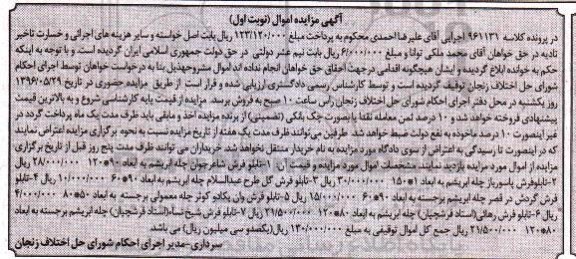 آگهی مزایده اموال (نوبت اول)
در پرونده کلاسه ۹۶۱۱۳۱ اجرایی آقای علیرضا احمدی محکوم به پرداخت مبلغ ۱۲۳/۱۲۰/۰۰۰ ریال بابت اصل خواسته و سایر هزینه های اجرائی و خسارت تاخیر
تادیه در حق خواهان آقای محمد ملکی توانا و مبلغ ۶/۰۰۰/۰۰۰ ریال بابت نیم عشر دولتی در حق دولت جمهوری اسلامی ایران گردیده است و با توجه به اینکه
حکم به خوانده ابلاغ گردیده و ایشان هیچگونه اقدامی در جهت احقاق حق خواهان انجام نداده اند اموال مشروحه ذیل بنا به درخواست خواهان توسط اجرای احکام
شورای حل اختلاف زنجان توقیف گردیده است و توسط کارشناس رسمی دادگستری ارزیابی شده و قرار است از طریق مزایده حضوری در تاریخ ۱۳۹۶/۰۵/۲۹
روز یکشنبه در محل دفتر اجرای احکام شورای حل اختلاف زنجان راس ساعت ۱۰ صبح به فروش برسد. مزایده از قیمت پایه کارشناسی شروع و به بالاترین قیمت
پیشنهادی فروخته خواهد شد و ۱۰ درصد ثمن معامله نقدا یا بصورت چک بانکی (تضمینی) از برنده مزایده اخذ و مابقی باید ظرف مدت یک ماه پرداخت گردد در
غیر اینصورت ۱۰ درصد ماخوذه به نفع دولت ضبط خواهد شد. طرفین می توانند ظرف مدت یک هفته از تاریخ مزایده نسبت به نحوه برگزاری مزایده اعتراض نمایند
که در اینصورت تا رسیدگی به اعتراض از سوی دادگاه مورد مزایده به نام خریدار منتقل نخواهد شد. خریداران می توانند ظرف مدت پنج روز قبل از تاریخ برگزاری
مزایده از اموال مورد مزایده بازدید نمایند. مشخصات اموال مورد مزایده و قیمت آن ۱-تابلو فرش شاعر جوان چله ابریشم به ابعاد ۹۰*۱۲۰ ۲۸/۰۰۰/۰۰۰ ریال
۲-تابلوفرش پاسورباز چله ابریشم به ابعاد ۱*۱۵۰ ۳۰/۰۰۰/۰۰۰ ریال ۳-تابلو فرش گل طرح عبدالسلام چله ابریشم به ابعاد ۹۰*۶۰ ۱۰/۰۰۰/۰۰۰ ریال ۴-تابلو
فرش گردش در قصر چله ابریشم برجسته به ابعاد ۹۰*۶۰ ۱۵/۰۰۰/۰۰۰ ریال ۵-تابلو فرش وان یکادو کوثر چله معمولی برجسته به ابعاد ۵۰*۸۰ ۴/۰۰۰/۰۰۰
ریال ۶-تابلو فرش رهائی(استاد فرشچیان) چله ابریشم به ابعاد ۸۰*۱۲۰ ۲۱/۵۰۰/۰۰۰ ریال ۷-تابلو فرش شیخ (استاد فرشچیان) چله ابریشم برجسته به ابعاد
۸۰*۱۲۰ ۲۱/۵۰۰/۰۰۰ ریال جمع کل اموال توقیفی به مبلغ ۱۳۰/۰۰۰/۰۰۰ ریال(یکصدو سی میلیون ریال) می باشد.
سرداری-مدیر اجرای احکام شورای حل اختلاف زنجان